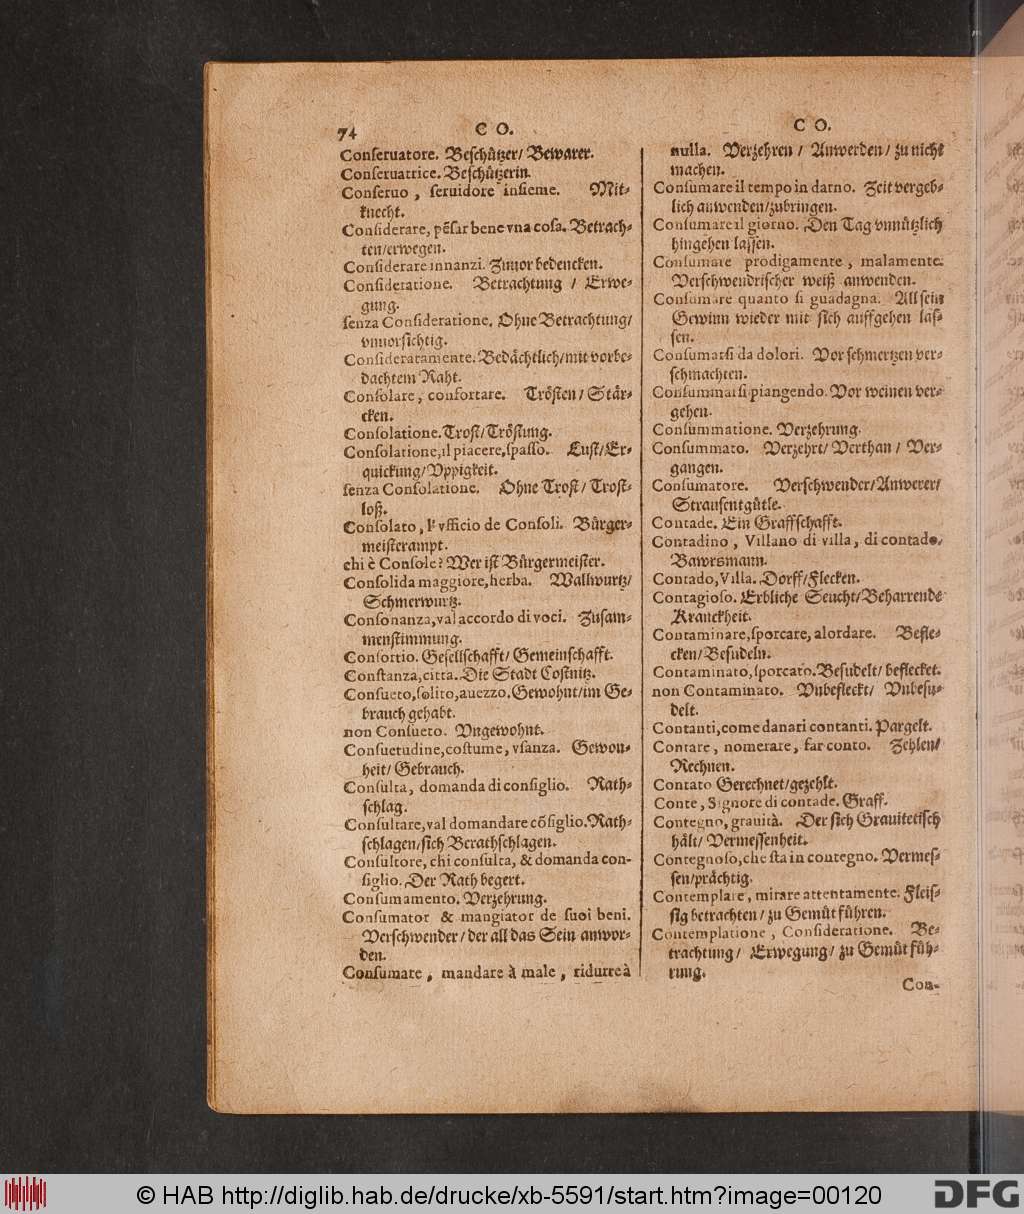 74 C O.
Conſeruatore. Beſchützer/ Bewarer.
Conſeruatrice. Beſchützerin.
Conſeruo, ſeruidore inſieme. Mit-
knecht.
Conſiderare, pẽſar bene vna coſa. Betrach-
ten/erwegen.
Conſiderare innanzi. Zuuor bedencken.
Conſideratione. Betrachtung / Erwe-
gung.
ſenza Conſideratione. Ohne Betrachtung/
vnuorſichtig.
Conſideratamente. Bedächtlich/mit vorbe-
dachtem Raht.
Conſolare, confortare. Tröſten/ Stär-
cken.
Conſolatione. Troſt/Tröſtung.
Conſolatione, il piacere, ſpaſſo. Luſt/Er-
quickung/Vppigkeit.
ſenza Conſolatione. Ohne Troſt/ Troſt-
loß.
Conſolato, l' vfficio de Conſoli. Bürger-
meiſterampt.
chi è Conſole? Wer iſt Bürgermeiſter.
Conſolida maggiore, herba. Wallwurtz/
Schmerwurtz.
Conſonanza, val accordo di voci. Zuſam-
menſtimmung.
Conſortio. Geſellſchafft/ Gemeinſchafft.
Conſtanza, citta. Die Stadt Coſtnitz.
Conſueto, ſolito, auezzo. Gewohnt/im Ge-
brauch gehabt.
non Conſueto. Vngewohnt.
Conſuetudine, coſtume, vſanza. Gewon-
heit/ Gebrauch.
Conſulta, domanda di conſiglio. Rath-
ſchlag.
Conſultare, val domandare cõſiglio. Rath-
ſchlagen/ſich Berathſchlagen.
Conſultore, chi conſulta, & domanda con-
ſiglio. Der Rath begert.
Conſumamento. Verzehrung.
Conſumator & mangiator de ſuoi beni.
Verſchwender/ der all das Sein anwor-
den.
Conſumare, mandare à male, ridurre à
C O.
nulla. Verzehren / Anwerden/ zu nicht
machen.
Conſumare il tempo in darno. Zeit vergeb-
lich anwenden/zubringen.
Conſumare il giorno. Den Tag vnnützlich
hingehen laſſen.
Conſumare prodigamente, malamente.
Verſchwendriſcher weiß anwenden.
Conſumare quanto ſi guadagna. All ſein
Gewinn wieder mit ſich auffgehen laſ-
ſen.
Conſumarſi da dolori. Vor ſchmertzen ver-
ſchmachten.
Conſummarſi piangendo. Vor weinen ver-
gehen.
Conſummatione. Verzehrung.
Conſummato. Verzehrt/ Verthan / Ver-
gangen.
Conſumatore. Verſchwender/Anwerer/
Strauſentgütle.
Contade. Ein Graffſchafft.
Contadino, Villano di villa, di contado.
Bawrsmann.
Contado, Villa. Dorff/Flecken.
Contagioſo. Erbliche Seucht/Beharrende
Kranckheit.
Contaminare, ſporcare, alordare. Befle-
cken/Beſudeln.
Contaminato, ſporcato. Beſudelt/ beflecket.
non Contaminato. Vnbefleckt/ Vnbeſu-
delt.
Contanti, come danari contanti. Pargelt.
Contare, nomerare, far conto. Zehlen/
Rechnen.
Contato Gerechnet/gezehlt.
Conte, Signore di contade. Graff.
Contegno, grauità. Der ſich Grauitetiſch
hält/ Vermeſſenheit.
Contegnoſo, che ſta in contegno. Vermeſ-
ſen/prächtig.
Contemplare, mirare attentamente. Fleiſ-
ſig betrachten/ zu Gemüt führen.
Contemplatione, Conſideratione. Be-
trachtung/ Erwegung/ zu Gemüt füh-
rung.
Con-
© HAB http://diglib.hab.de/drucke/xb-5591/start.htm?image=00120
DFG